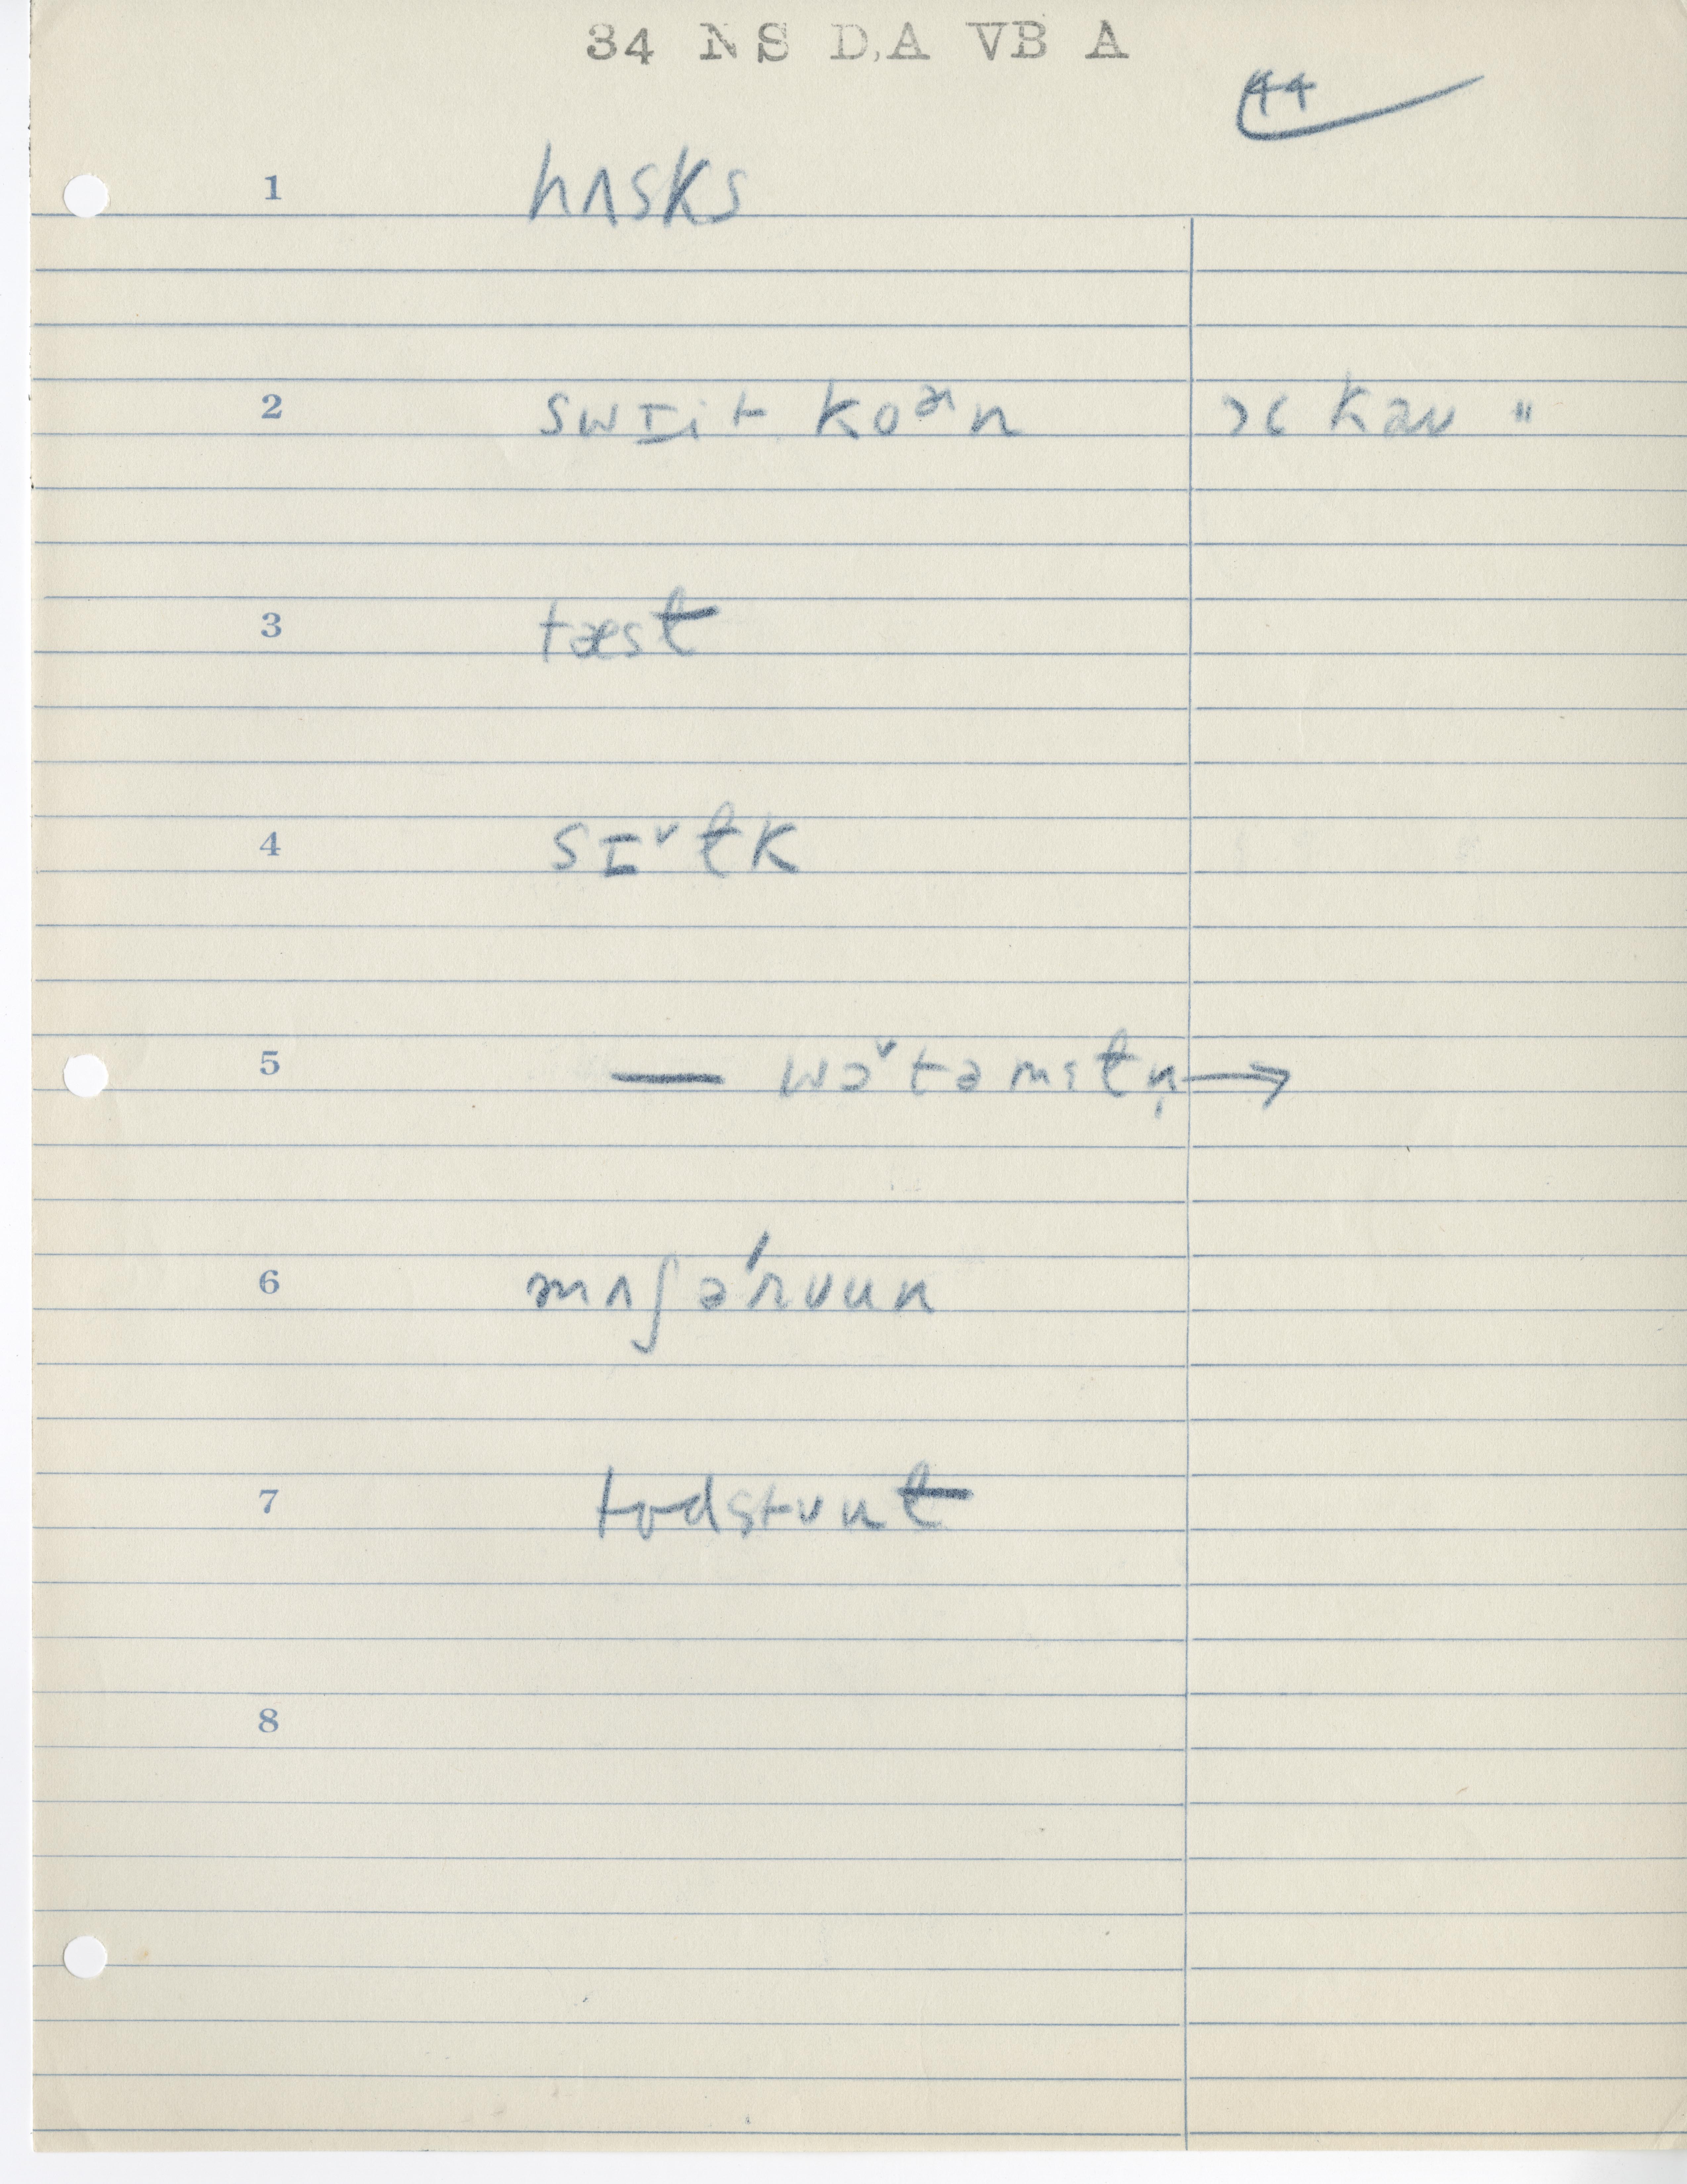 34 NS D,A VB A
44
1 hʌsks
2 swɪit koᵊn ɔc kən "
3 tæsɫ
4 sɪˇɫk
5 — wɔˇtəmɪɫn̩ →
6 mʌʃəˊrʊun
7 todstʊuɫ
8